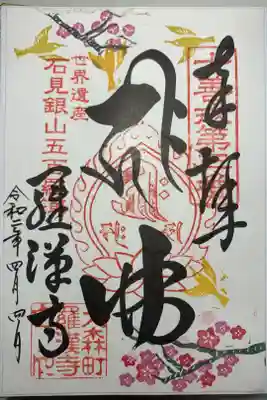 奉拝
十善戒第
佛
世界遺産
石見銀山五百羅漢
羅漢寺
令和二年 四月 四日
大森町
羅漢寺